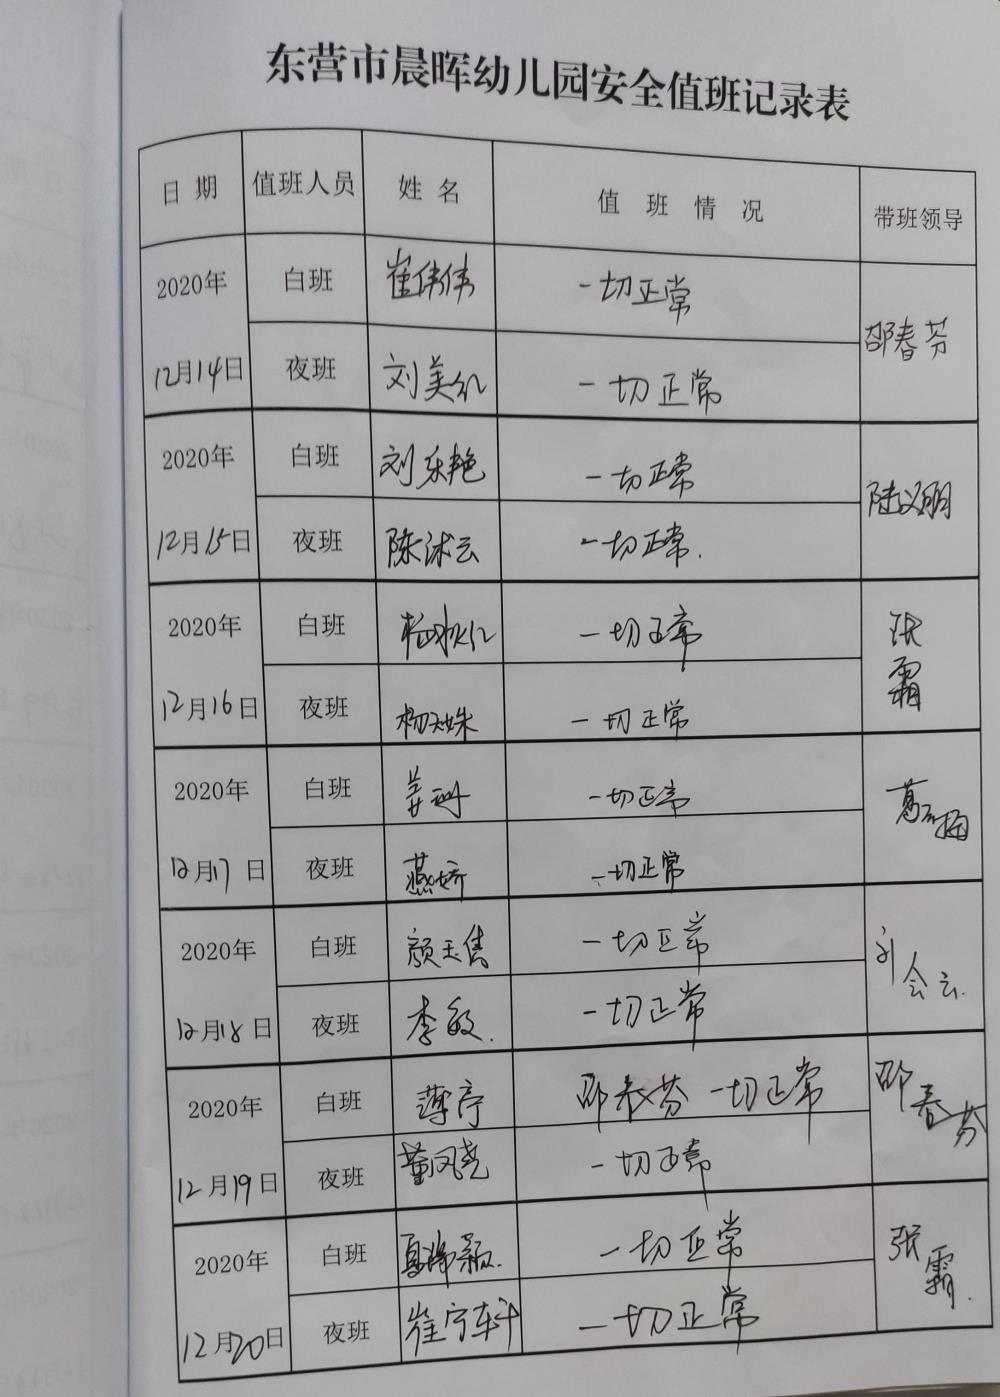 东营市晨晖幼儿园安全值班记录表
日期 值班人员 姓名 值班情况 带班领导
2020年 白班 崔伟伟 一切正常 邵春芬
12月14日 夜班 刘美红 一切正常
2020年 白班 刘东艳 一切正常 陆义朋
12月15日 夜班 陈沭云 一切正常.
2020年 白班 一切正常 张霜
12月16日 夜班 杨姝 一切正常
2020年 白班 姜珊 一切正常 葛
12月17日 夜班 燕娇 一切正常
2020年 白班 颜玉隽 一切正常 刘会云.
12月18日 夜班 李敏. 一切正常
2020年 白班 薄宁 邵春芬 一切正常 邵春芬
12月19日 夜班 董凤尧 一切正常
2020年 白班 夏瑞颖. 一切正常 张霜.
12月20日 夜班 崔宁 一切正常